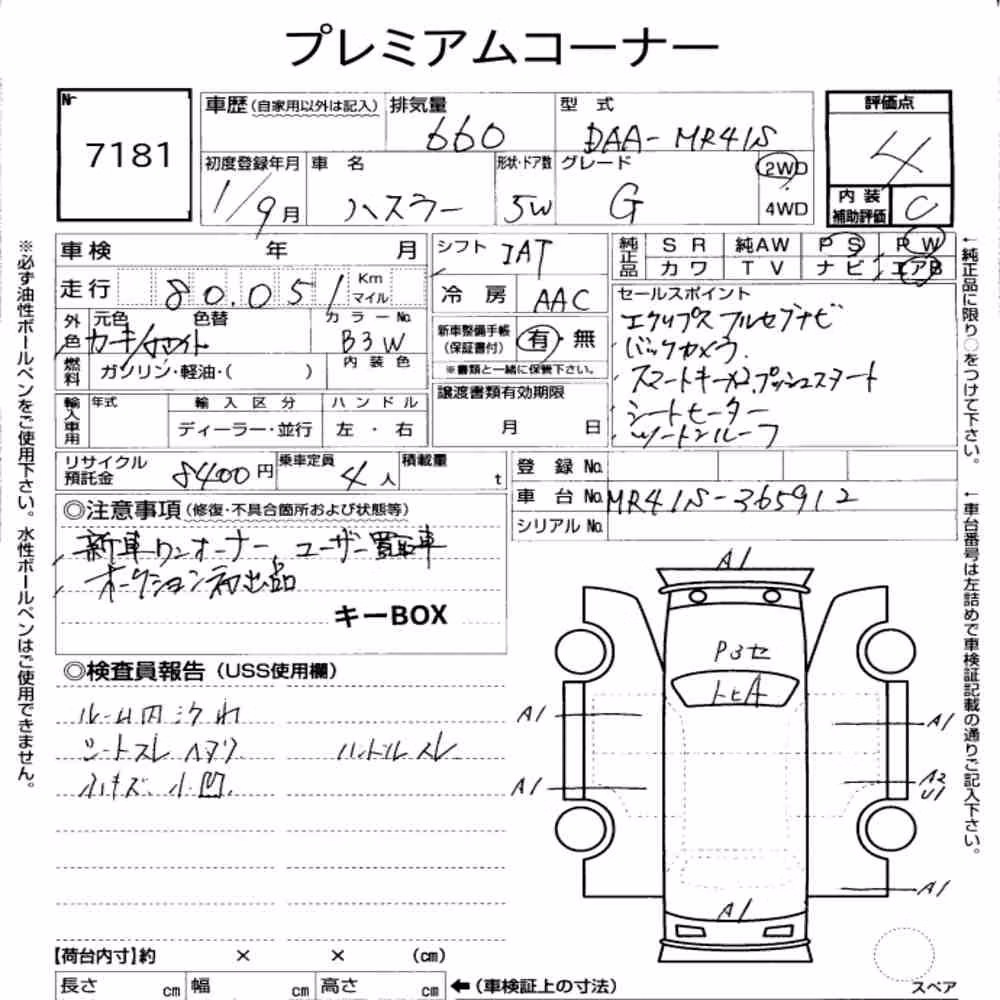 プレミアムコーナー
Nr
7181
車歴 (自家用以外は記入)
排気量
660
型 式
DAA-MR41S
評価点
4
内 装
補助評価
C
初度登録年月
1/9月
車 名
ハスラー
形状・ドア数
5W
グレード
G
2WD
4WD
車検 年 月
シフト IAT
純正品
S R 純AW P S P W
カワ T V ナビ エアB
走行 80.051 Km マイル
冷 房 AAC
セールスポイント
エクリプスフルセグナビ
バックカメラ
スマートキーX2.プッシュスタート
シートヒーター
ツートンルーフ
外色
元色 色替
カーキ/ホワイト
カラーNo.
B3W
新車整備手帳
(保証書付)
有・無
※書類と一緒に保管下さい。
燃料
ガソリン・軽油・( )
内 装 色
譲渡書類有効期限
月 日
輸入車用
年式
輸 入 区 分
ディーラー・並行
ハ ン ド ル
左 ・ 右
リサイクル
預託金
8400円
乗車定員
4人
積載量
t
登 録 No.
車 台 No. MR41S-365912
シリアル No.
◎注意事項 (修復・不具合箇所および状態等)
新車ワンオーナー、ユーザー買取車
オークション初出品
キーBOX
◎検査員報告 (USS使用欄)
ルーム内汚れ
シートスレ ヘタリ ハンドルスレ
小キズ 小凹.
A1
P3セ
トヒA
A1
A1
A1
A2
U1
A1
A1
スペア
【荷台内寸】約 × × (cm)
長さ cm 幅 cm 高さ cm
←(車検証上の寸法)
※必ず油性ボールペンをご使用下さい。水性ボールペンはご使用できません。
←純正品に限り○をつけて下さい。
←車台番号は左詰めで車検証記載の通りご記入下さい。